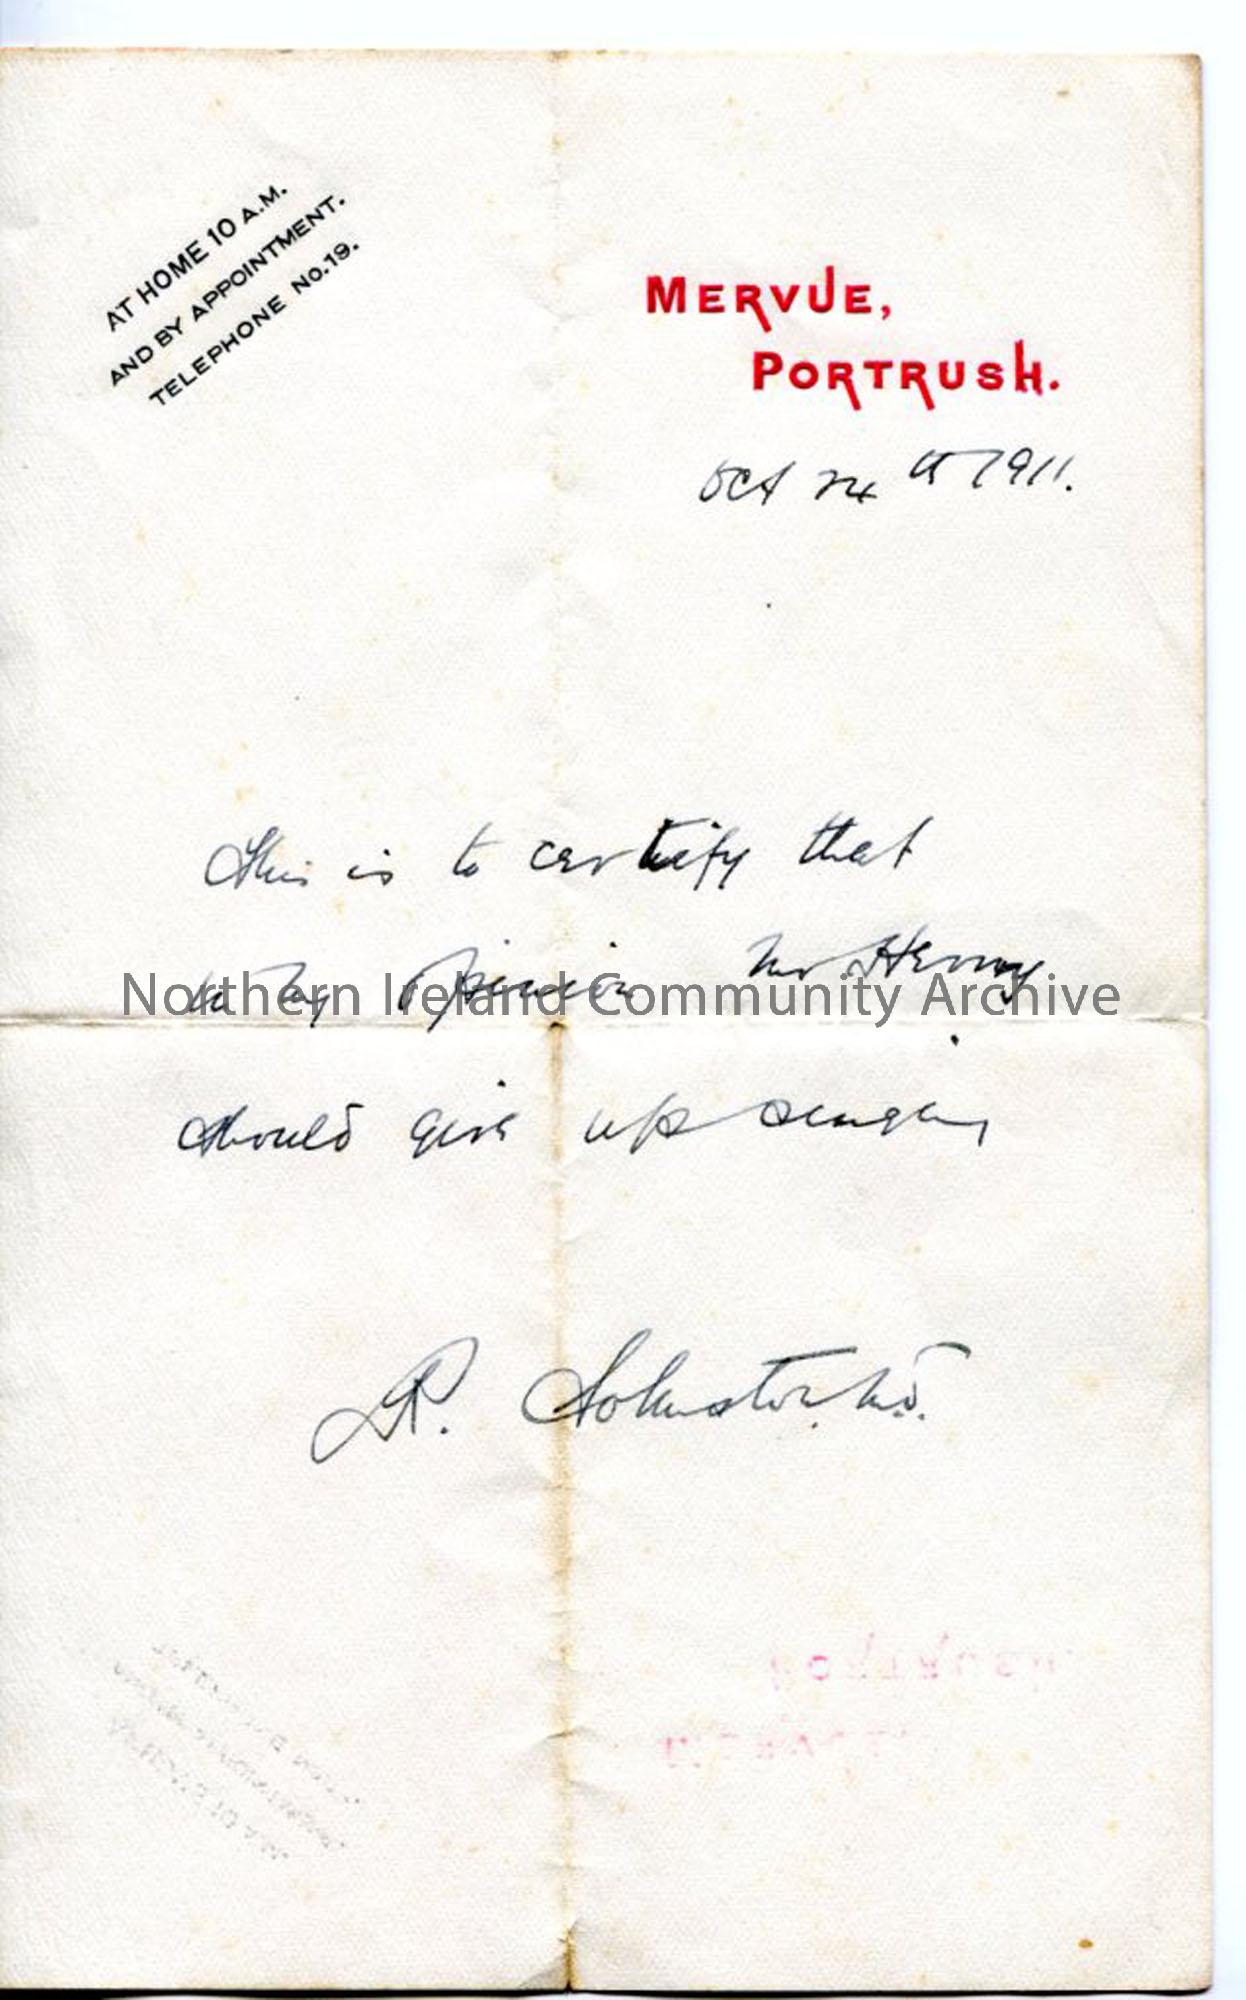 AT HOME 10 A.M.
AND BY APPOINTMENT.
TELEPHONE No. 19.
MERVUE,
PORTRUSH.
Oct 24th 1911.
This is to certify that
in my opinion Mr Henry
Northern Ireland Community Archive
should give up singing
R. Johnston. M.D.